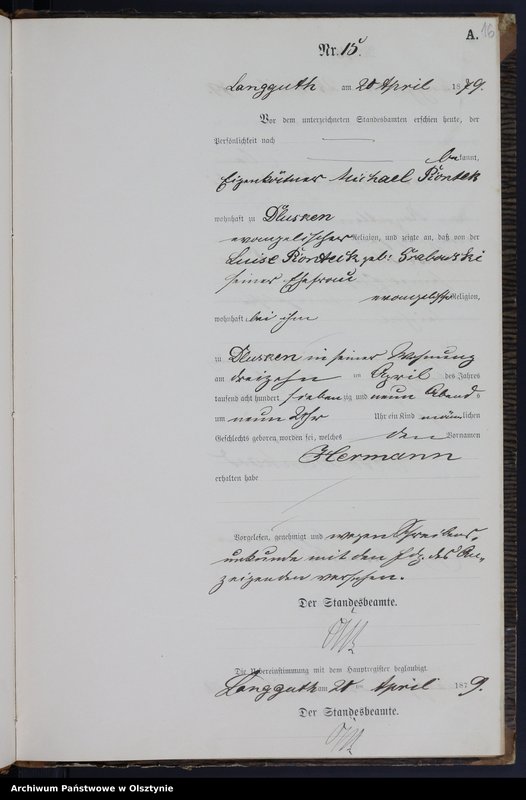 A. 16
Nr. 15.
Langguth am 20 April 1879.
Vor dem unterzeichneten Standesbeamten erschien heute, der
Persönlichkeit nach
bekannt,
Eigenkätner Michael Rontek
wohnhaft zu Dlusken
evangelischer Religion, und zeigte an, daß von der
LuiseRonteck geb: Grabowski
seiner Ehefrau
evangelischer Religion,
wohnhaft bei ihm
zu Dlusken in seiner Wohnung
am dreizehn ten April des Jahres
tausend acht hundert siebenzig und neun Abends
um neun Uhr Uhr ein Kind männlichen
Geschlechts geboren worden sei, welches den Vornamen
Hermann
erhalten habe
Vorgelesen, genehmigt und wegen Schreibens-
unkunde mit den Hdz. des An-
zeigenden versehen.
Der Standesbeamte.
Die Uebereinstimmung mit dem Hauptregister beglaubigt
Langguth am 20 ten April 1879.
Der Standesbeamte.
Archiwum Państwowe w Olsztynie